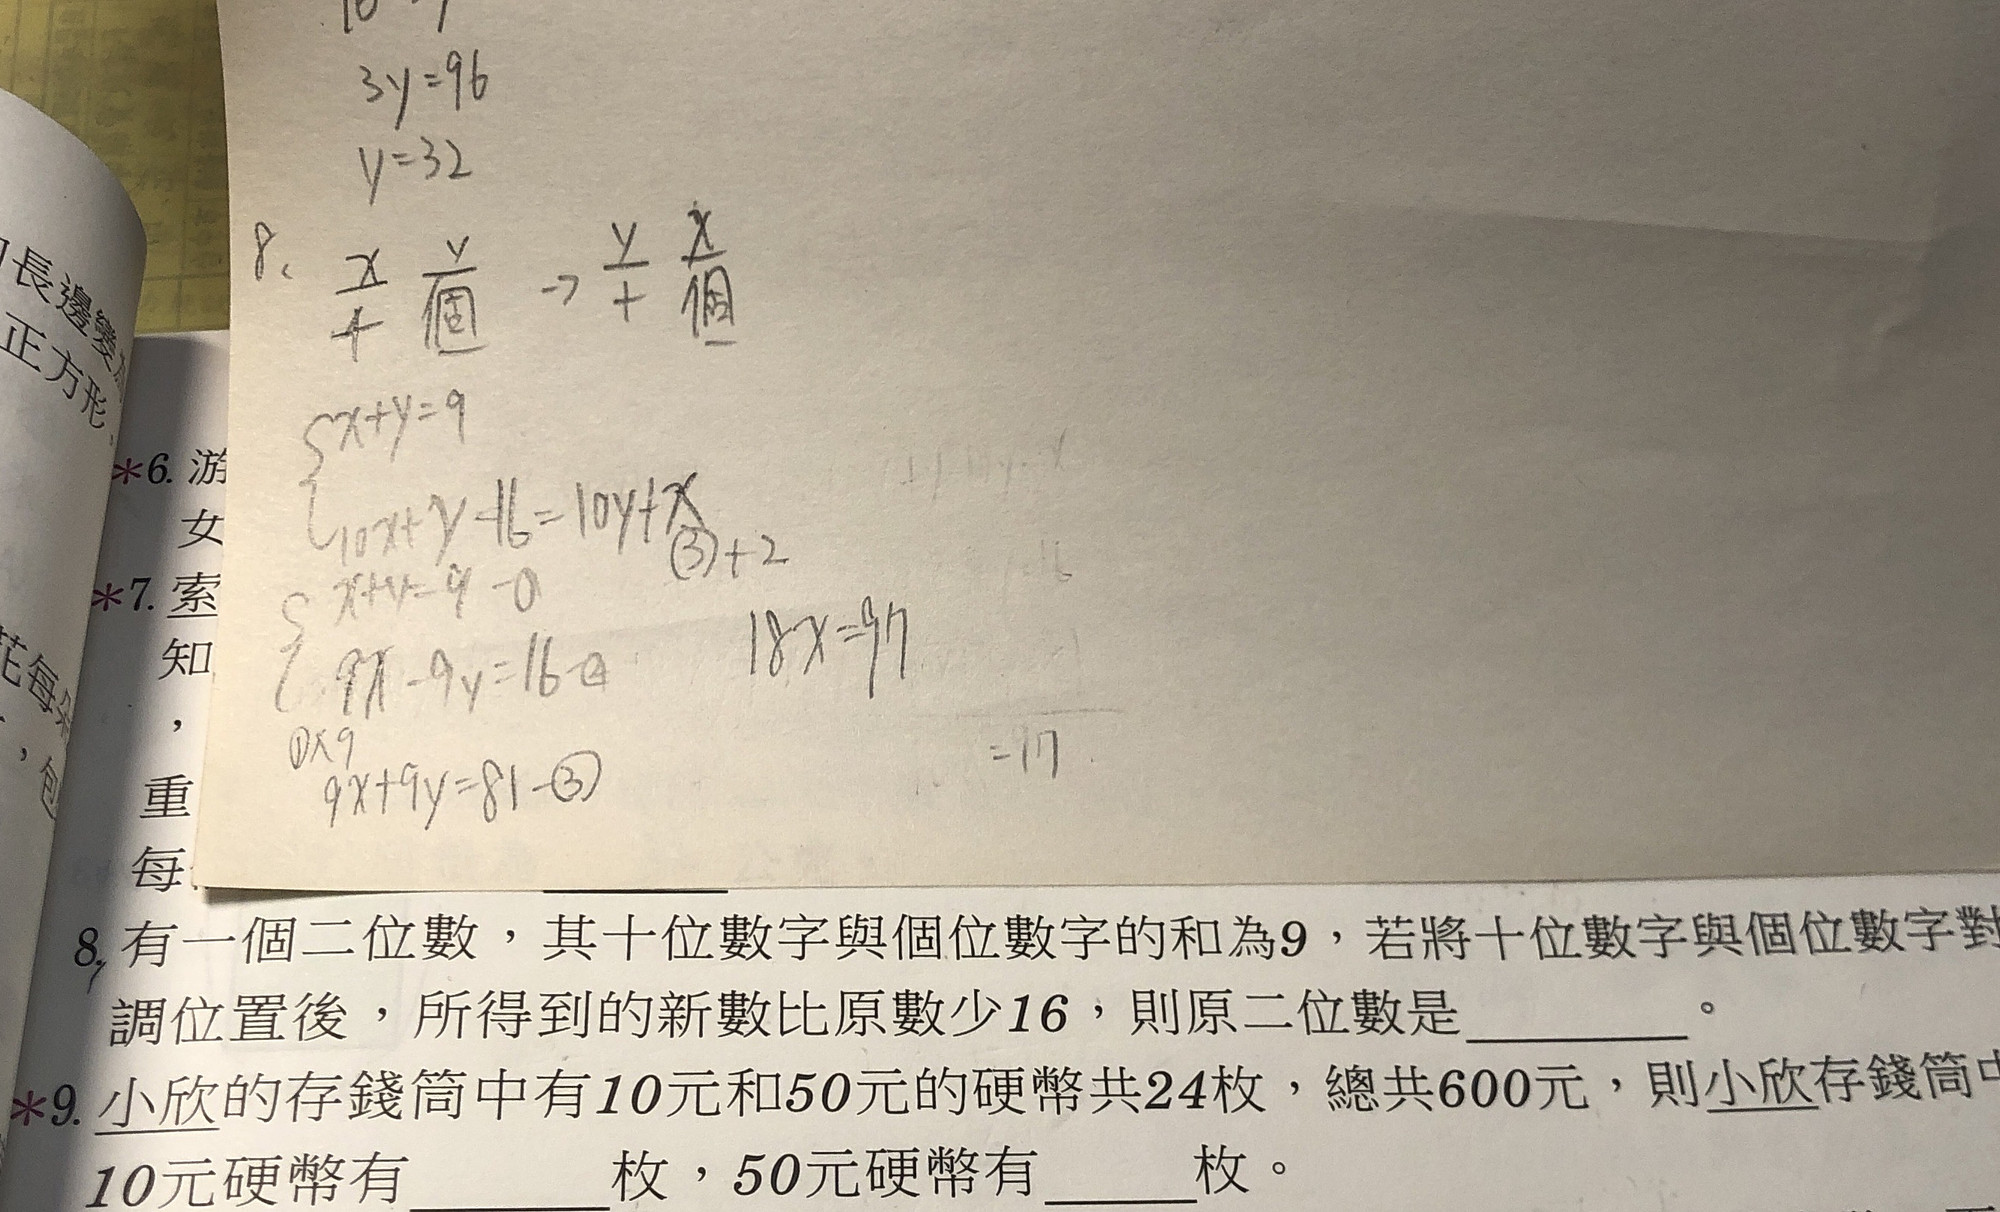 3y=96
y=32
8、 x/十 y/個 → y/十 x/個
x+y=9
10x+y-16=10y+x
x+y=9-①
9x-9y=16-②
①×9
9x+9y=81-③
③+2
18x=97
=17
長邊變
正方形,
花每
,包
*6. 游
女
*7. 索
知
,
重
每
8. 有一個二位數,其十位數字與個位數字的和為9,若將十位數字與個位數字對
調位置後,所得到的新數比原數少16,則原二位數是______。
*9. 小欣的存錢筒中有10元和50元的硬幣共24枚,總共600元,則小欣存錢筒中
10元硬幣有______枚,50元硬幣有______枚。